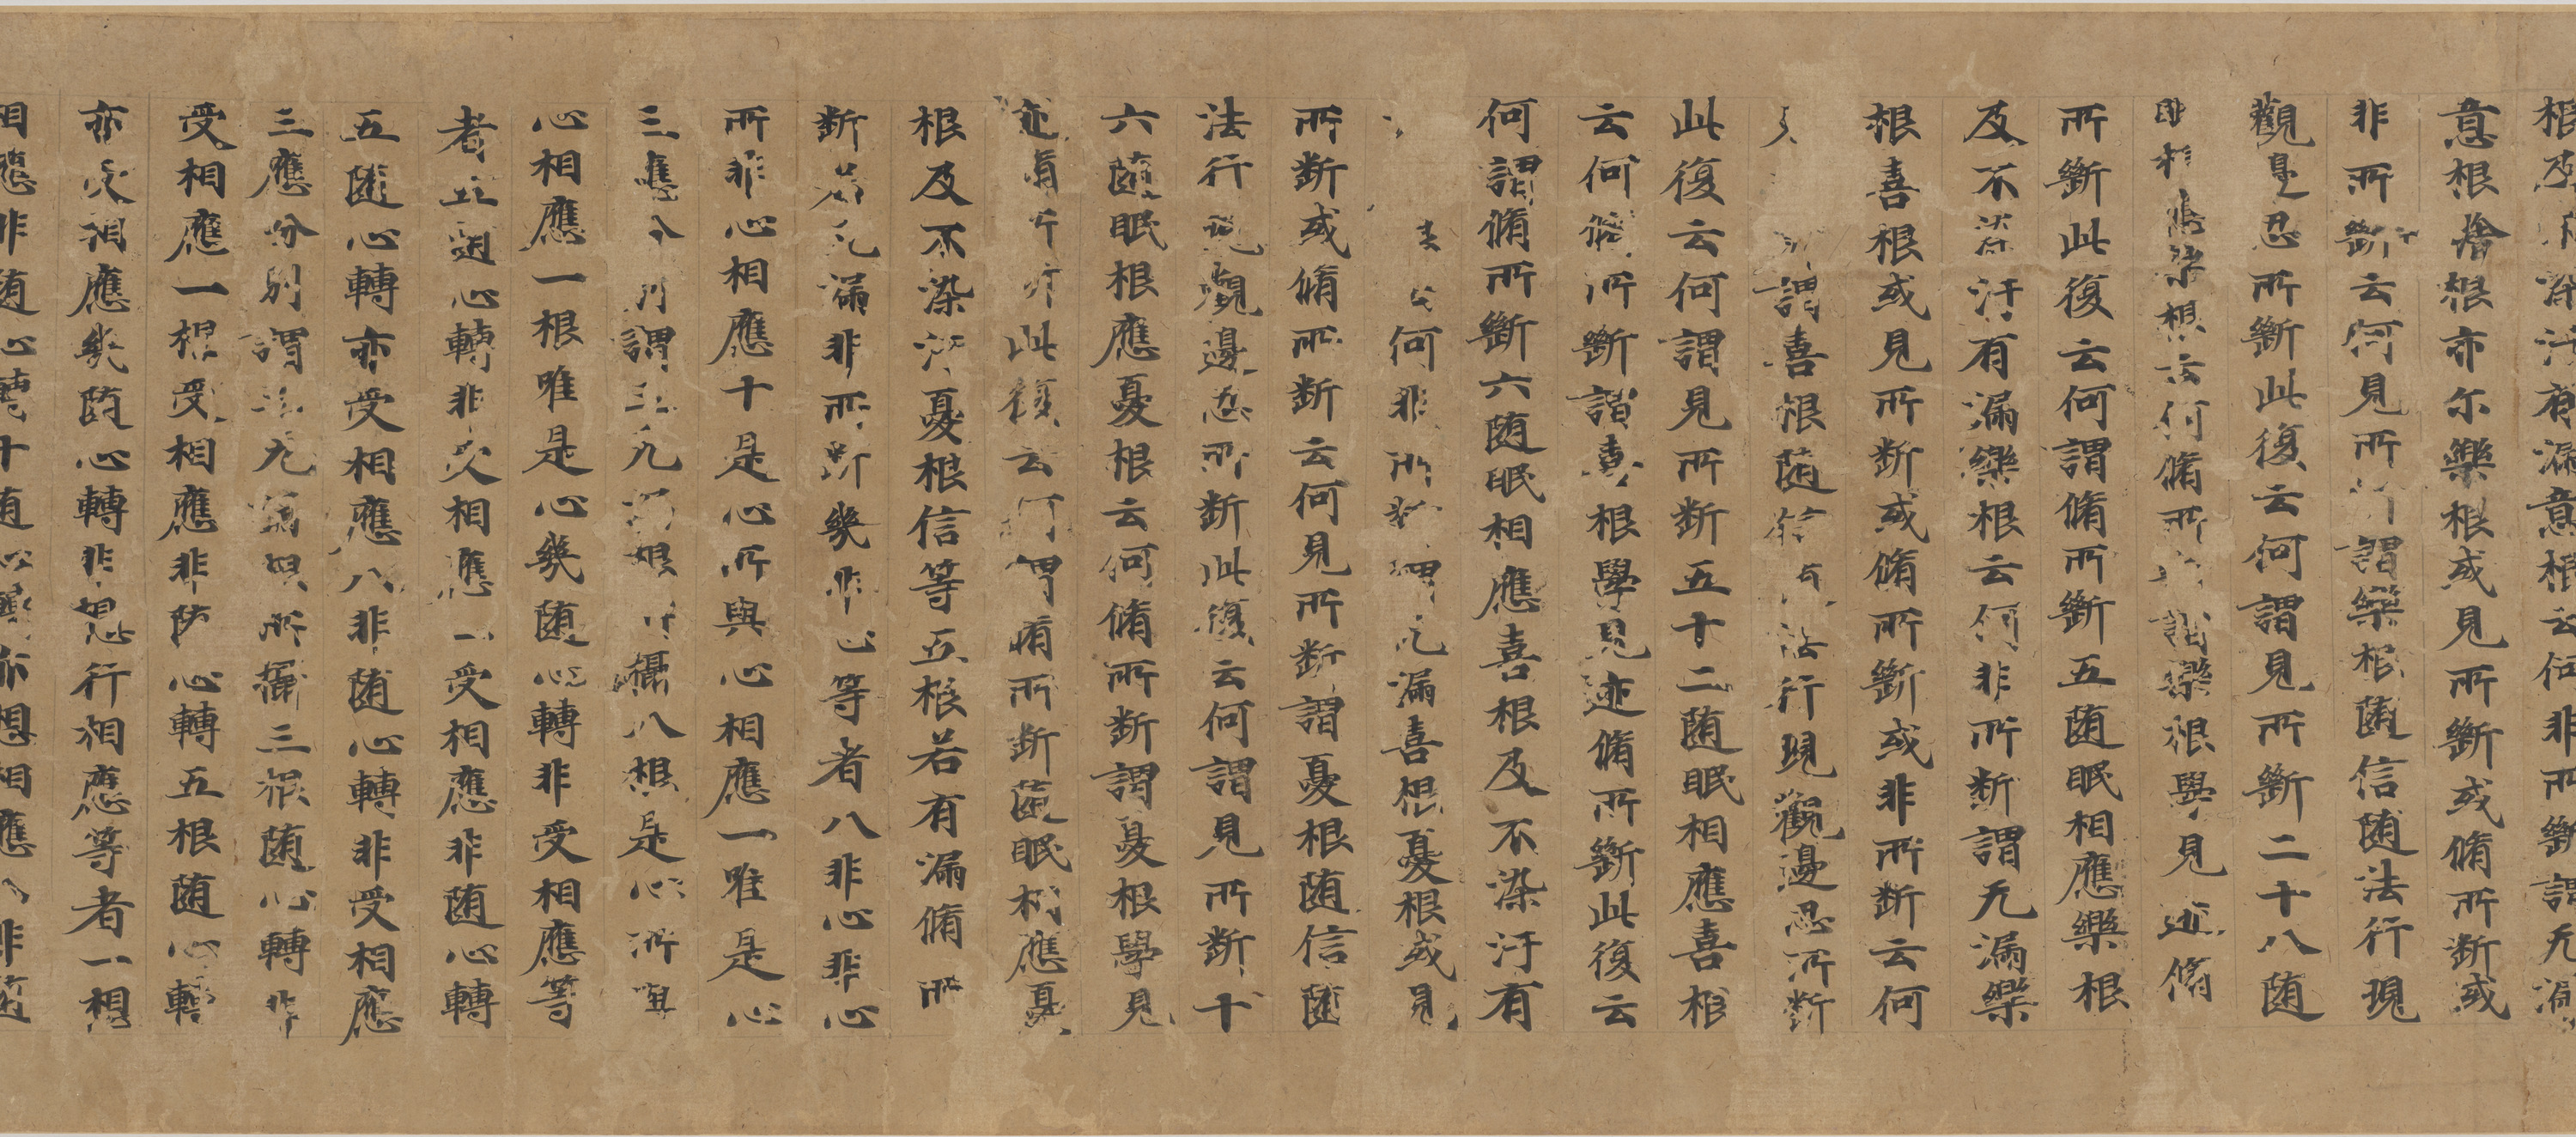 根及不染汙有漏意根云何非所斷謂无漏
意根捨根亦尔樂根或見所斷或脩所断或
非所斷云何見所謂樂根随信随法行現
觀見忍所斷此復云何謂見所斷二十八随
眠相應樂根云何脩所謂樂根學見迹脩
所斷此復云何謂脩所斷五随眠相應樂根
及不染汙有漏樂根云何非所断謂无漏樂
根喜根或見所断或脩所斷或非所断云何
謂喜根随信法行現觀邊忍所断
此復云何謂見所断五十二随眠相應喜根
云何脩所斷謂喜根學見迹脩所斷此復云
何謂脩所斷六随眠相應喜根及不染汙有
何非所断謂无漏喜根憂根或見
所斷或脩所断云何見所断謂憂根随信随
法行現觀邊忍所断此復云何謂見所断十
六随眠根應憂根云何脩所断謂憂根學見
迹脩所断此復云何謂脩所断随眠相應憂
根及不染汙憂根信等五根若有漏脩所
断若无漏非所断幾非心等者八非心非心
所非心相應十是心所與心相應一唯是心
三應分別謂三无漏根所攝八根是心所與
心相應一根唯是心幾随心轉非受相應等
者五随心轉非受相應一受相應非随心轉
五随心轉亦受相應八非随心轉非受相應
三應分別謂三无漏根所攝三根随心轉非
受相應一根受相應非随心轉五根随心轉
亦受相應幾随心轉非想行相應等者一想
相應非随心轉十随心轉亦想相應八非随